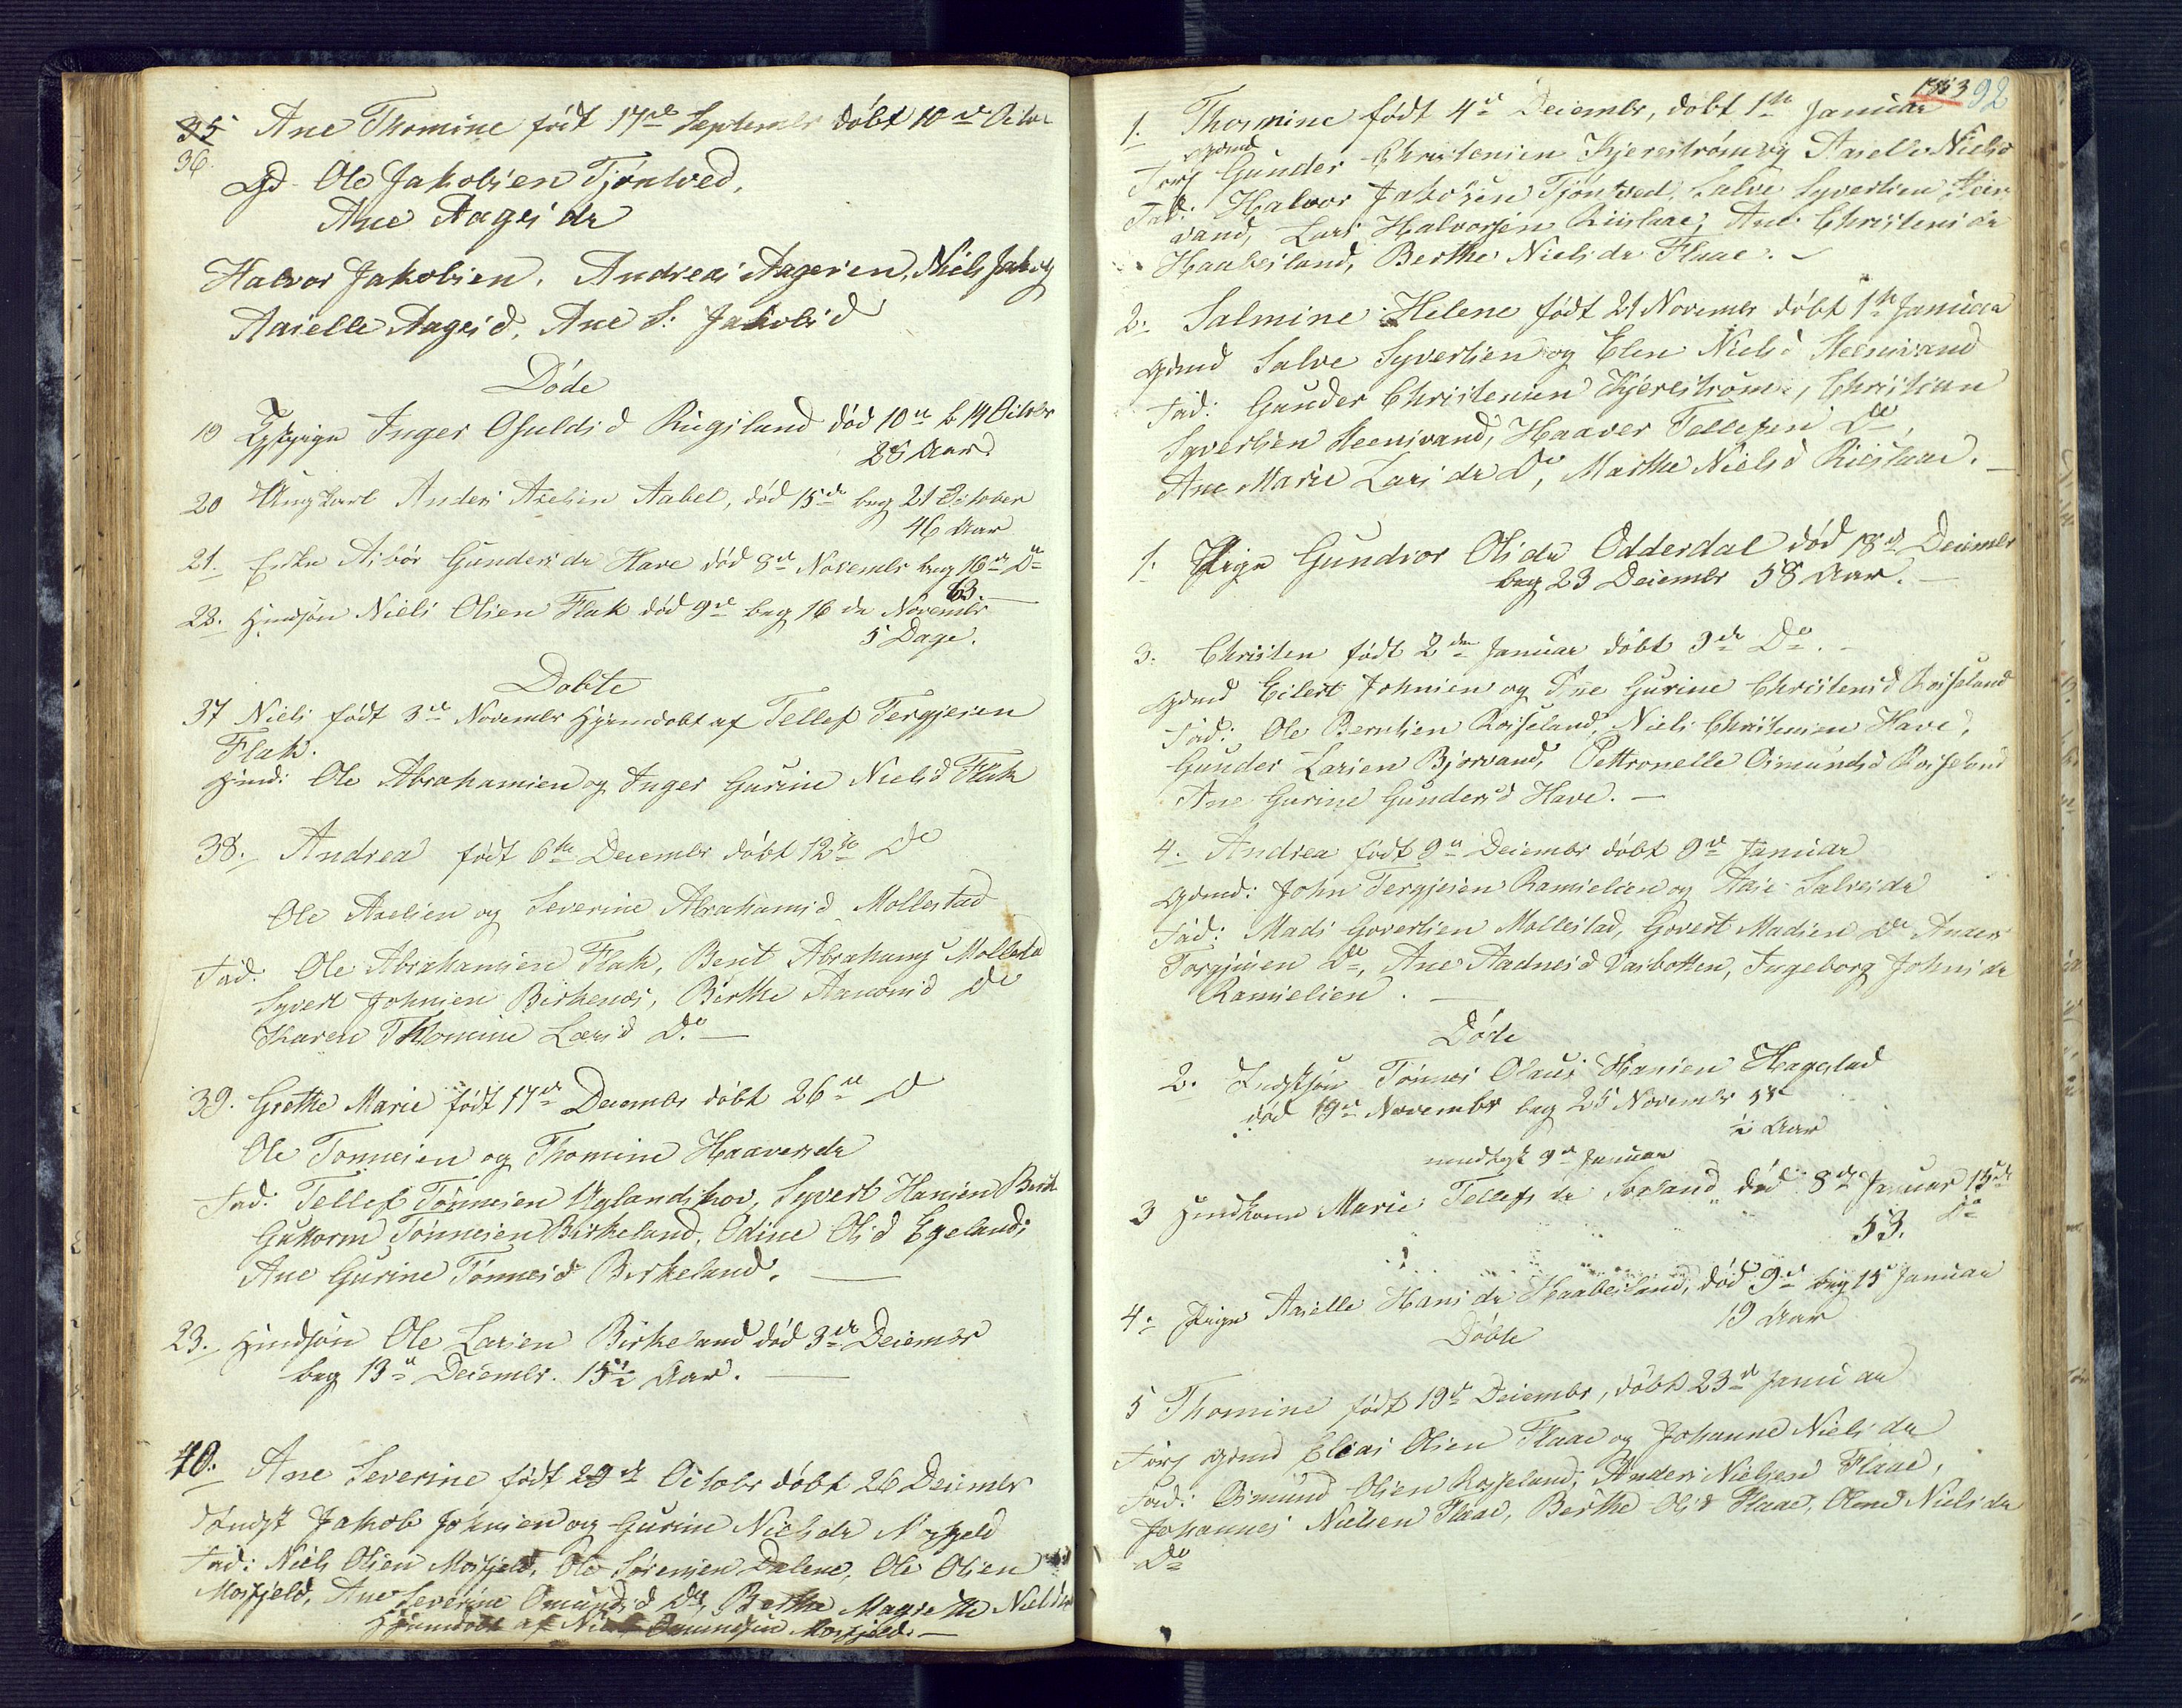 35 Ane Thomine födt 17de Septembr döbt 10de Octbr
36.
Gd Ole Jakobsen Tjöntved,
Ane Aagesdr
Halvor Jakobsen. Andreas Aagesen, Niels Jakobs
Aasille Aagesd, Ane S. Jakobsd
Döde
19 Inger Osuldsd Rugsland död 10de b 14 Octobr
28 Aar.
20 Ungkarl Anders Axelsen Aabel, död 15de beg 21 October
46 Aar
21. Enke Asbör Gundersdr Have död 8de Novembr beg 16de Do
63.
22. Huusm Sön Niels Olsen Flak död 9de beg 16de Novembr
5 Dage.
Döbte
37 Niels födt 3de Novembr Hjemdöbt af Tellef Tergjesen
Flak.
Huusmd: Ole Abrahamsen og Inger Gurine Nielsd Flak
38. Andrea födt 6te Decembr döbt 12te Do
Ole Axelsen og Severine Abrahamsd Mollestad
Fad: Ole Abrahamsen Flak, Bent Abrahams Mollestad
Syvert Johnsen Birkenes, Birthe Aanonsd Do
Karen Thomine Larsd Do. —
39. Grethe Marie födt 17de Decembr döbt 26de D
Ole Tönnesen og Thomine Haaversdr
Fad: Tellef Tönnesen Uglandshov, Syvert Hansen Birk
Guttorm Tönnesen Birkeland, Odine Olsd Egelands
Ane Gurine Tönnesd Birkeland. —
23. Huusm Sön Ole Larsen Birkeland död 3de Decembr
beg 13de Decembr. 15½ Aar. —
40. Ane Severine födt 29de Octobr döbt 26 Decembr
Jakob Johnsen og Gurine Nielsdr Mosfjeld
Fad: Niels Olsen Mosfjeld, Ole Sörensen Dalene, Ole Olsen
Mosfjeld, Ane Severine Omundsd Do, Berthe Magrethe Nielsdr
Hjemdöbt af Niels Omundsen Mosfjeld. —
1853 92
1. Thormine födt 4de Decembr, döbt 1te Januar
Gdmd
For Gunder Christensen Kjerrström og Aasille Nielsd
Fad: Halvor Jakobsen Tjöntved, Salve Syvertsen Steens
vand, Lars Halvorsen Riislaae, Ane Christensdr
Haabesland, Berthe Nielsdr Flaae. —
2. Salmine Helene födt 21 Novembr döbt 1te Januar
Gdmd Salve Syvertsen og Elen Nielsd Steensvand
Fad: Gunder Christensen Kjerrström, Christian
Syvertsen Steensvand, Haaver Tellefsen Do,
Ane Marie Larsdr Do, Marthe Nielsd Riislaae. —
1. Pige Gundvor Olsdr Oddersdal död 18de Decembr
beg 23 Decembr 58 Aar. —
3. Christen födt 2den Januar döbt 9de Do. —
Gdmd Eilert Johnsen og Ane Gurine Christensd Rosseland
Fad: Ole Berntsen Rosseland, Niels Christensen Have,
Gunder Larsen Bjorvand, Pettronelle Osmundsd Rosseland
Ane Gurine Gundersd Have. —
4. Andrea födt 9de Decembr döbt 9de Januar
Gdmd: John Tergjesen Ramselien og Aase Salvesdr
Fad: Mads Govertsen Mollestad, Govert Madsen Do Anders
Torgjusen Do, Ane Aadnesd Vasbotten, Ingeborg Johnsdr
Ramselien. —
Döde
2. Sön Tönnes Olaus Hansen Hagestad
död 19de Novembr beg 25 Novembr
½ Aar
9de Januar
3 Huusm Kone Marie Tellefsdr död 8de Januar 15de
53. Do
4. Pige Aasille Hansdr Haabesland, död 9de beg 15 Januar
19 Aar
Döbte
5 Thomine födt 19de Decembr, döbt 23de Januar
For Gdmd Elias Olsen Flaae og Johanne Nielsdr
Fad: Osmund Olsen Rosseland, Anders Nielsen Flaae,
Johannes Nielsen Flaae, Berthe Olsd Flaae, Olene Nielsdr
Do